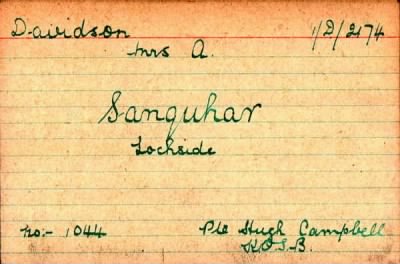 Davidson 1/D/2174
Mrs A.
Sanquhar
Lochside
No:- 1044 Pte Hugh Campbell
K.O.S.B.